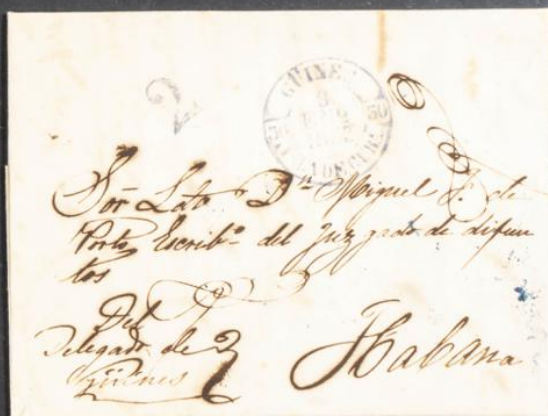 2
GÜINES
8
Sor Ldo Dn Miguel J. de
Porto Escribo del Juzgado de difun
tos
Del
Delegado de
Güines
Habana